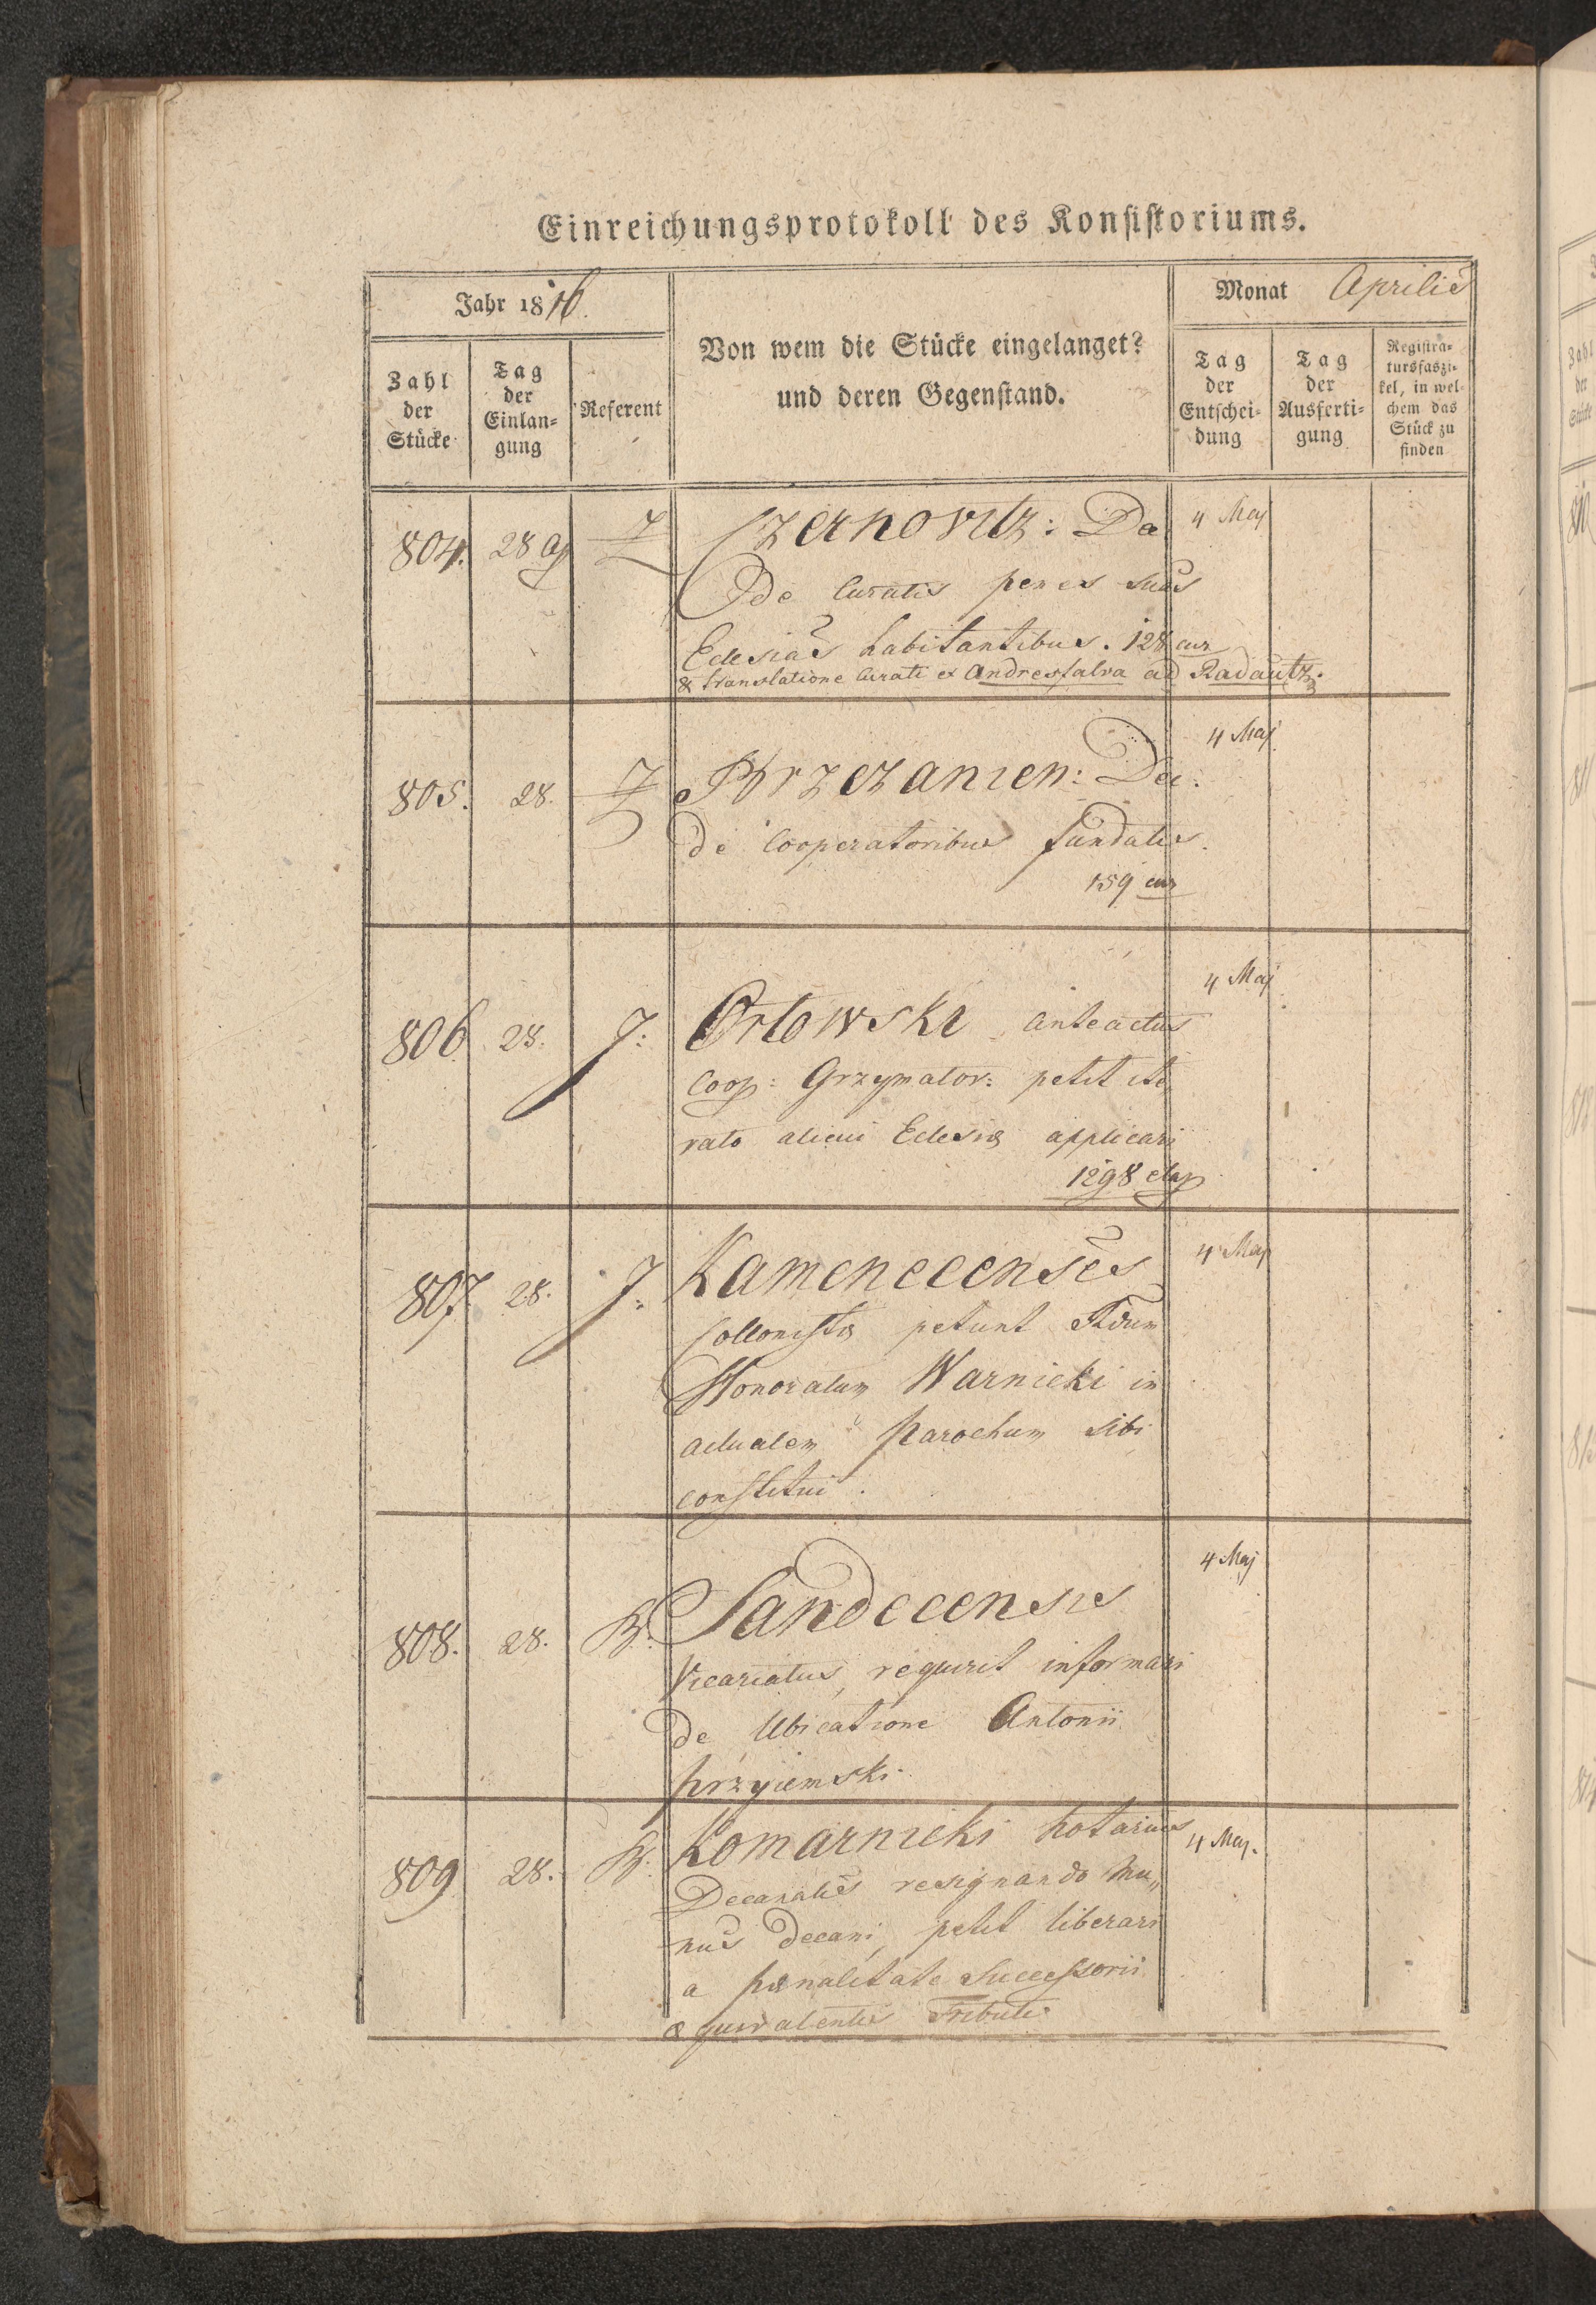 Einreichungsprotokoll des Konsistoriums.
Jahr 1816.
Von wem die Stücke eingelanget?
und deren Gegenstand.
Monat Aprilis
Zahl
der
Stücke
Tag
der
Einlan-
gung
Referent
Tag
der
Entschei-
dung
Tag
der
Ausferti-
gung
Registra-
tursfaszi-
kel, in wel-
chem das
Stück zu
finden
804. 28 Ap J Czernovitz: De 4 Maj
De Curatis penes suas
Eclesias habitantibus. 128 cur
& translatione Curati ex Andresfalva ad Radautz.
805. 28. J Brzezanien: De: 4 Maj
de Cooperatoribus fundatis.
159 cur
806 28. J: Orlowski anteactus 4 Maj
Coop: Grzymalov: petit ite
rato alicui Eclesiæ applicari
1298 elap
807. 28. J: Kamenecenses 4 Maj
Collonistæ petunt Rdum
Honoratum Warnicki in
actualem Parochum sibi
constitui.
808. 28. B: Sandecensis 4 Maj
Vicariatus, requirit informari
de Ubicatione Antonii
Przyiemski.
809 28. B. Komarnicki Notarius 4 Maj.
Decanalis resignando Mu„
nus Decani, petit liberari
a pœnalitate Successorii
æquivalentis Tributi.